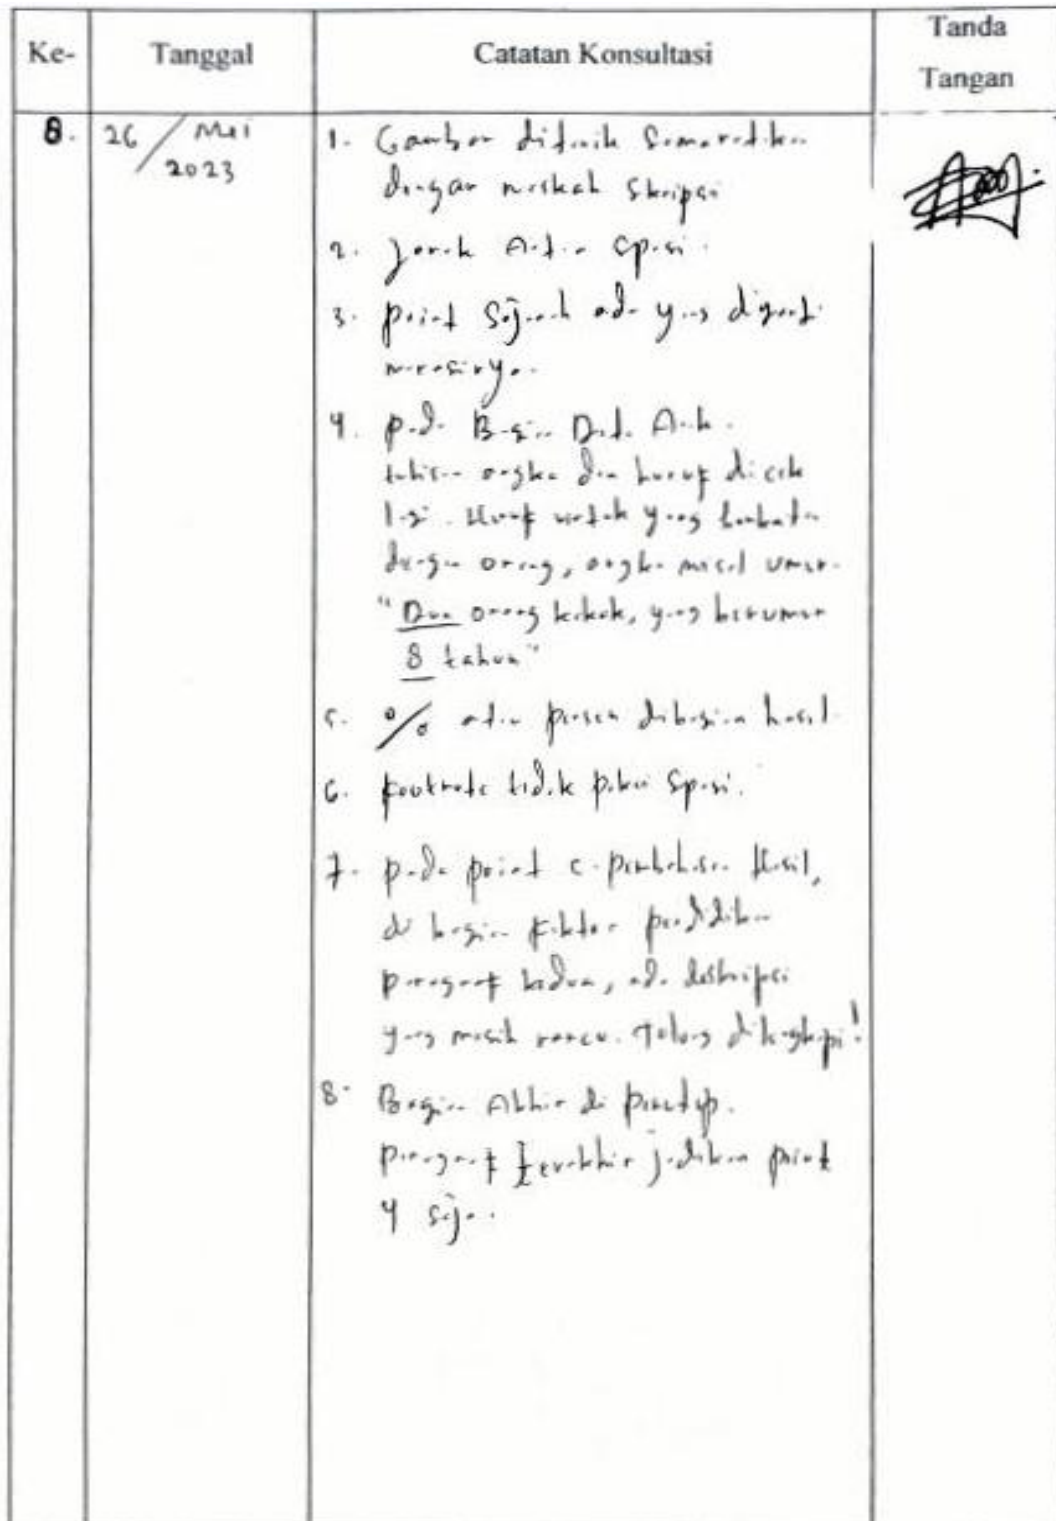 Ke- Tanggal Catatan Konsultasi Tanda Tangan
8. 26/Mei 2023
1. Gambar ditarik
dengan naskah skripsi
2. Jarak Antar spasi.
3. point Sejarah ada yang diganti
narasinya.
4. pada Bagian Data Anak.
tulisan angka dan huruf dicek
lagi. Huruf untuk yang
dengan orang, angka misal umur.
"Dua orang kakak, yang berumur
8 tahun"
5. % atau persen dibagian hasil
6. footnote tidak pakai spasi.
7. pada point c. pembahasan Hasil,
di bagian faktor pendidikan
paragraf kedua, ada deskripsi
yang masih rancu. Tolong dilengkapi!
8. Bagian Akhir di penutup.
paragraf terakhir jadikan point
4 saja.